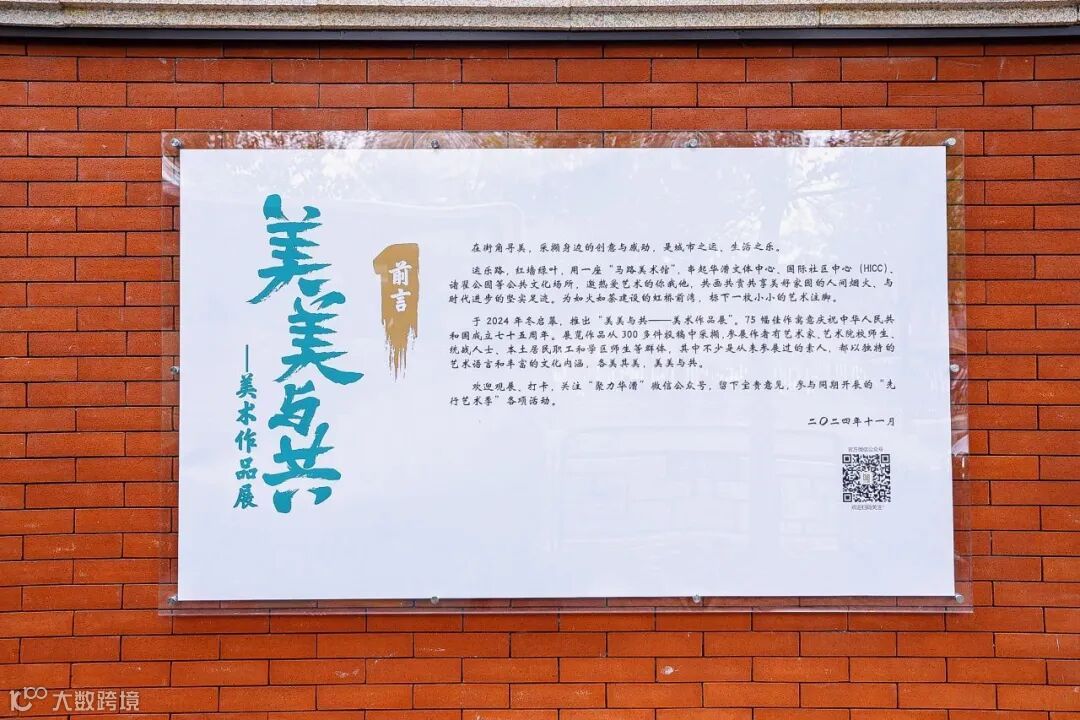 美美与共
——美术作品展
前言
在街角寻美，采撷身边的创意与感动，是城市之远、生活之乐。
运乐路，红墙绿叶，用一座“马路美术馆”，串起华漕文体中心、国际社区中心（HICC）、
诸翟公园等公共文化场所，邀热爱艺术的你我他，共画共赏共享美好家园的人间烟火、与
时代进步的坚实足迹。为如火如荼建设的虹桥前湾，标下一枚小小的艺术注脚。
于 2024 年冬启幕，推出“美美与共——美术作品展”。75 幅佳作寓意庆祝中华人民共
和国成立七十五周年。展览作品从 300 多件投稿中采撷，参展作者有艺术家、艺术院校师生、
统战人士、本土居民职工和学区师生等群体，其中不少是从未参展过的素人，都以独特的
艺术语言和丰富的文化内涵，各美其美，美美与共。
欢迎观展、打卡，关注“聚力华漕”微信公众号，留下宝贵意见，参与同期开展的“先
行艺术季”各项活动。
二〇二四年十一月
官方微信公众号
欢迎扫码关注！
大数跨境